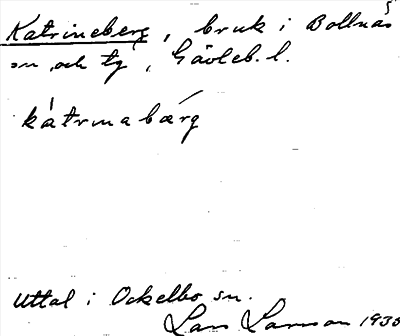 Katrineberg, bruk i Bollnäs
sn och tg, Gävleb. l.
kátrinabärg
Uttal i Ockelbo sn.
Lars Larsson 1930